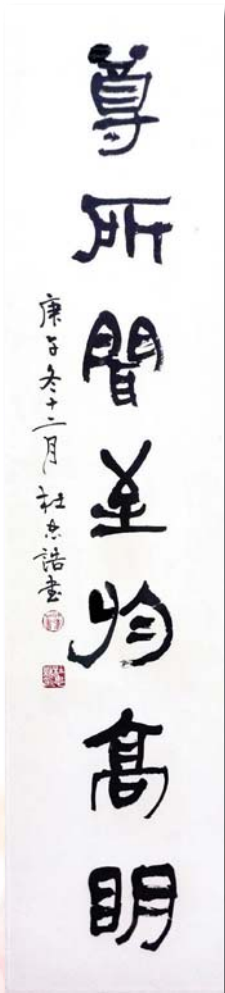 尊所聞至於高明
庚午冬十二月杜忠誥書